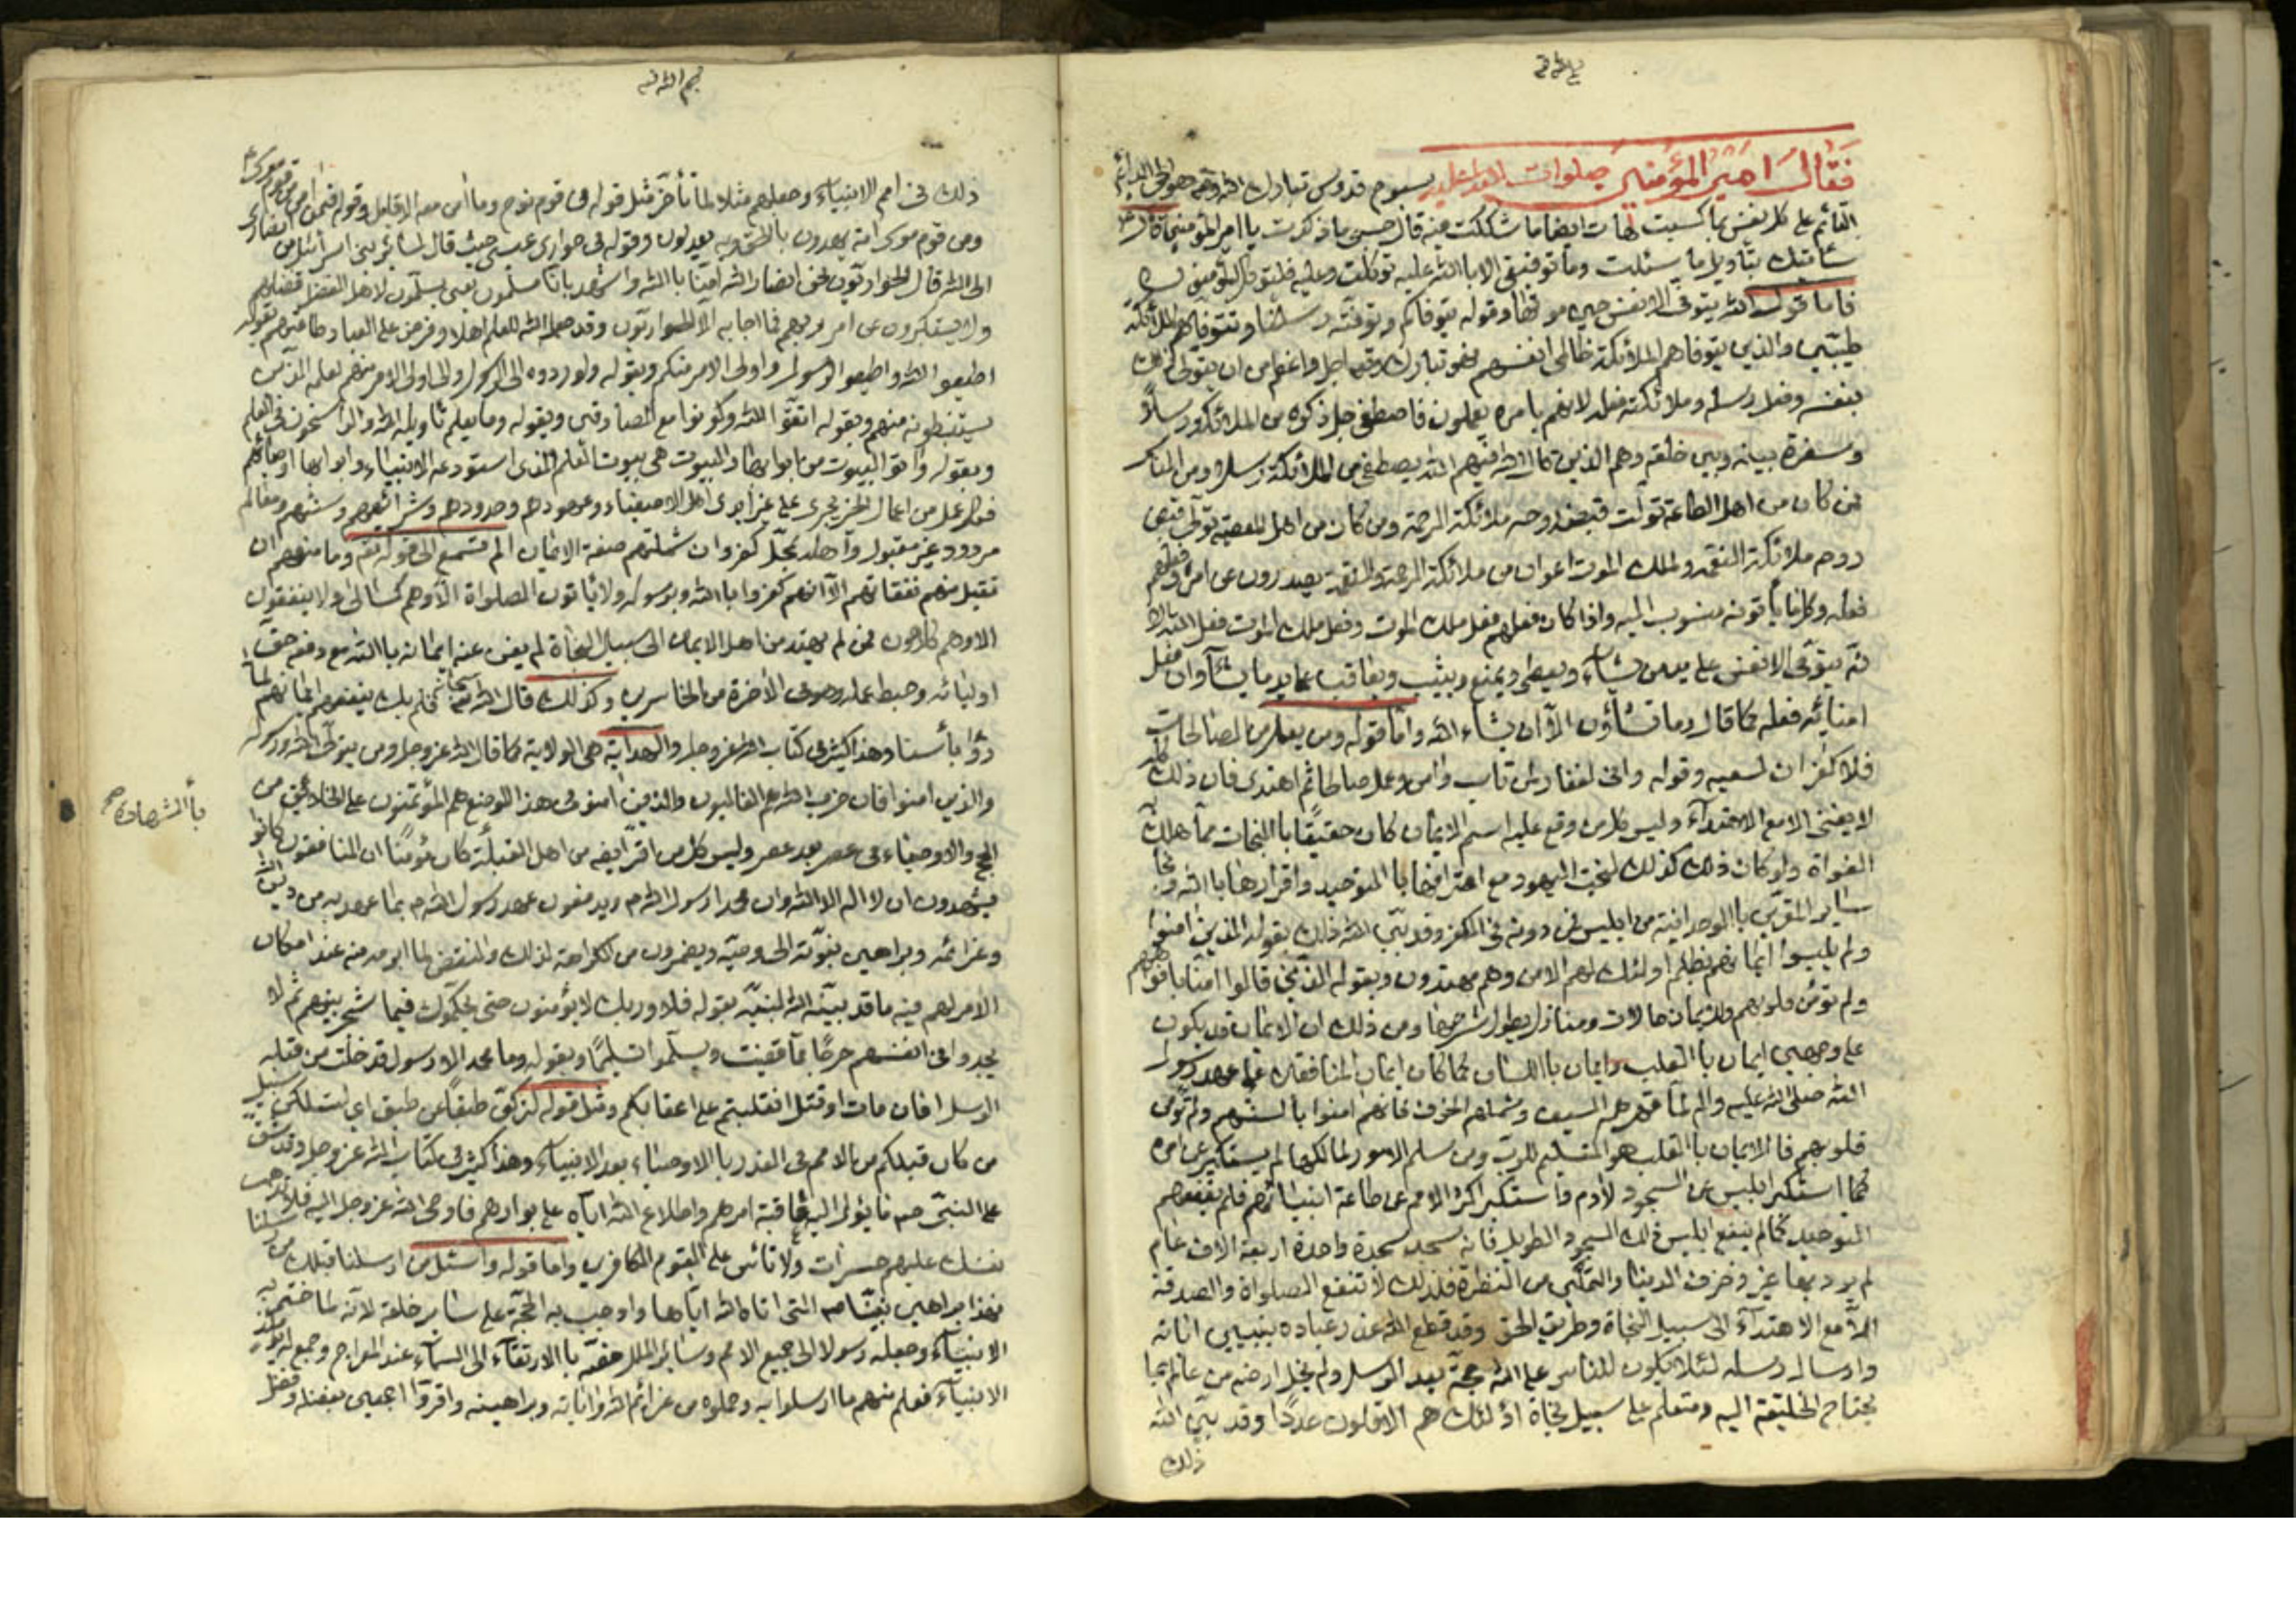 فقال امير المؤمنين صلوات الله عليه سبوح قدوس تبارك الله وتعه هو الحى الدائم
القائم على كل نفس بما كسبت هات ايضا ما شككت فيه قال حسبى ما ذكرت يا امير المؤمنين قال
سأنبئك بتأويل ما سئلت وما توفيقى الا باالله عليه توكلت وعليه فليتوكل المؤمنون
فاما قوله الله يتوفى الانفس حين موتها وقوله يتوفاكم وتوفته رسلنا وتتوفاهم الملائكة
طيبين والذين يتوفاهم الملائكة ظالمى انفسهم فهو تبارك وتعه اجل واعظم من ان يتولى ذلك
بنفسه وفعل رسله وملائكته فعله لانهم بامره يعملون فاصطفى جل ذكره من الملائكة رسلاً
وسفرة بينه وبين خلقه وهم الذين قال الله فيهم الله يصطفى من الملائكة رسلا ومن الناس
فمن كان من اهل الطاعة تولت قبض روحه ملائكة الرحمة ومن كان من اهل المعصية تولى قبض
روحه ملائكة النقمة ولملك الموت اعوان من ملائكة الرحمة والنقمة يصدرون عن امره وفعلهم
فعله وكلما يأتونه منسوب اليه واذا كان فعلهم فعل ملك الموت وفعل ملك الموت فعل الله
لانه يتوفى الانفس على يد من يشاء ويعطى ويمنع ويثيب ويعاقب على يد من يشآء وان فعل
امنائه فعله كما قال وما تشاؤن الآ ان يشاء الله واما قوله ومن يعمل من الصالحات
فلا كفران لسعيه وقوله وانى لغفار لمن تاب وامن وعمل صالحا ثم اهتدى فان ذلك كله
لا يغنى الا مع الاهتدآء وليس كل من وقع عليه اسم الايمان كان حقيقًا باالنجات مما هلك
الغواة ولو كان ذلك كذلك لنجت اليهود مع اعترافها باالتوحيد واقرارها باالله ونجا
ساير المقرين باالوحدانية من ابليس فمن دونه فى الكفر وقد بين الله ذلك بقوله الذين امنوا
ولم يلبسوا ايمانهم بظلم اولئك لهم الامن وهم مهتدون وبقوله الذين قالوا امنا بافواههم
ولم تؤمن قلوبهم وللايمان حالات ومنازل يطول شرحها ومن ذلك ان الايمان قد يكون
على وجهين ايمان باالقلب وايمان باللسان كما كان ايمان المنافقين على عهد رسول
الله صلى الله عليه واله لما قهرهم السيف وشملهم الخوف فانهم امنوا بالسنتهم ولم تؤمن
قلوبهم فالايمان باالقلب هو التسليم للرب ومن سلم الامور لمالكها لم يستكبر عن امره
كما استكبر ابليس عن السجود لادم واستكبر اكثر الامم عن طاعة انبيائهم فلم ينفعهم
التوحيد كما لم ينفع ابليس ذلك السجود الطويل فانه سجد سجدة واحدة اربعة الاف عام
لم يرد بها غير زخرف الدنيا والتمكين من النظرة فلذلك لا تنفع الصلواة والصدقة
الآ مع الاهتدآء الى سبيل النجاة وطريق الحق وقد قطع الله عذر عباده بتبيين اياته
وارسال رسله لئلا يكون للناس على الله حجة بعد الرسل ولم يخل ارضه من عالم بما
يحتاج الخليقة اليه ومتعلم على سبيل نجاة اولئك هم الاقلون عددًا وقد بين الله
ذلك
ذلك فى امم الانبياء وجعلهم مثلا لما تأخر مثل قوله فى قوم نوح وما امن معه الا قليل وقوله فيمن امن من قوم موسى
ومن قوم موسى امة يهدون بالحق وبه يعدلون وقوله فى حوارى عيسى حيث قال لسائر بنى اسرائيل من انصارى
الى الله قال الحواريون نحن انصار الله امنا باالله واشهد بانا مسلمون يعنى يسلمون لاهل الفضل فضلهم
ولا يستكبرون عن امر ربهم فما اجابه الا الحواريون وقد جعل الله للعلم اهلا وفرض على العباد طاعتهم بقوله
اطيعوا الله واطيعوا الرسول واولى الامر منكم وبقوله ولو ردوه الى الرسول والى اولى الامر منهم لعلمه الذين
يستنبطونه منهم وبقوله اتقوا الله وكونوا مع الصادقين وبقوله وما يعلم تأويله الا الله والراسخون فى العلم
وبقوله وأتوا البيوت من ابوابها والبيوت هى بيوت العلم الذى استودعه الانبياء وابوابها اوصيائهم
فكل عمل من اعمال الخير يجرى على غير ايدى اهل الاصطفاء وعهودهم وحدودهم وشرائعهم وسننهم ومعالم
مردود غير مقبول واهله بمحل كفر وان شملتهم صفة الايمان الم تسمع الى قوله تعه وما منعهم ان
تقبل منهم نفقاتهم الآ انهم كفروا باالله وبرسوله ولا يأتون الصلواة الا وهم كسالى ولا ينفقون
الا وهم كارهون فمن لم يهتد من اهل الايمان الى سبيل النجاة لم يغن عنه ايمانه باالله مع دفعه حق
اوليائه وحبط عمله وهو فى الاخرة من الخاسرين وكذلك قال الله سبحانه فلم يك ينفعهم ايمانهم لما
رأوا بأسنا وهذا كثير فى كتاب الله عزوجل والهداية هى الولاية كما قال الله عزوجل ومن يتول الله ورسوله
والذين امنوا فان حزب الله هم الغالبون والذين امنو فى هذا الموضع هم المؤتمنون على الخلائق من
الحجج والاوصياء فى عصر بعد عصر وليس كل من اقر ايضه من اهل القبلة كان مؤمنًا ان المنافقون كانوا
بأالشهادة
يشهدون ان لا اله الا الله وان محمدا رسول الله م ويدفعون عهد رسول الله م بما عهد به من دين الله
وعزائمه وبراهين نبوته الى وصيه ويضمرون من الكراهة لذلك والنقض لما ابرمه منه عند امكان
الامر لهم فيه ما قد بينه الله لنبيه بقوله فلا وربك لا يؤمنون حتى يحكموك فيما شجر بينهم ثم لا
يجدوا فى انفسهم حرجًا مما قضيت ويسلموا تسليمًا وبقوله وما محمد الا رسول قد خلت من قبله
الرسل افان مات او قتل انقلبتم على اعقابكم ومثل قوله لتركبن طبقًا عن طبق اى لتسلكن سبيل
من كان قبلكم من الامم فى الغدر باالاوصياء بعد الانبياء وهذا كثير فى كتاب الله عزوجل وقد شق
على النبى صه ما يؤل اليه عاقبة امرهم واطلاع الله اياه على بوارهم فاوحى الله عزوجل اليه فلا تذهب
نفسك عليهم حسرات ولا تأس على القوم الكافرين واما قوله واسئل من ارسلنا قبلك من رسلنا
فهذا من براهين نبينا صه التى اتاه الله اياها واوجب به الحجة على ساير خلقه لانه لما ختم به
الانبيآء وجعله رسولا الى جميع الامم وسائر الملل خصه باالارتقآء الى السمآء عند المعراج وجمع له يومئذ
الانبيآء فعلم منهم ما ارسلوا به وحملوه من عزائم الله واياته وبراهينه واقروا اجمعين بفضله وفضل